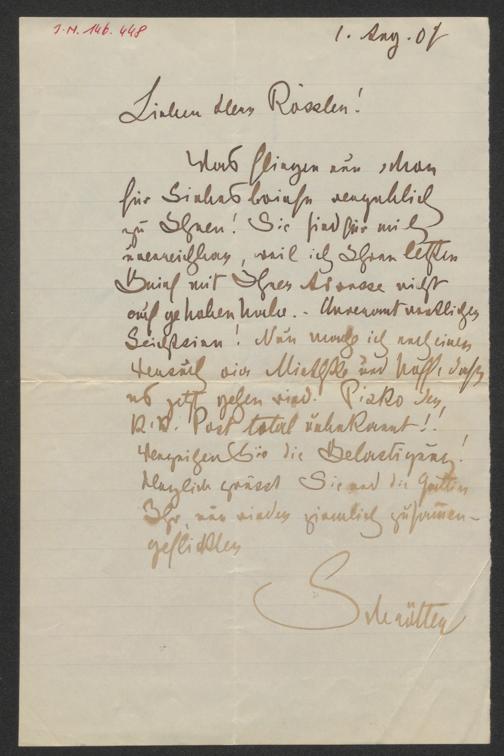 J.N. 146.448
1. Aug. 07
Lieber Herr Rössler!
Was fliegen nun schon
für Liebesbriefe vergeblich
zu Ihnen! Sie sind für mich
unerreichbar, weil ich Ihren letzten
Brief mit Ihrer Adresse nicht
aufgehoben habe. - Unverantwortlicher
Leichtsinn! Nun mache ich noch einen
Versuch via Miethke und hoffe, dass
es jetzt gehen wird! der
K.K. Post total unbekannt!!
Verzeihen Sie die Belästigung!
Herzlich grüsst Sie und die Gattin
Ihr, nun wieder ziemlich zusammen-
geflickter